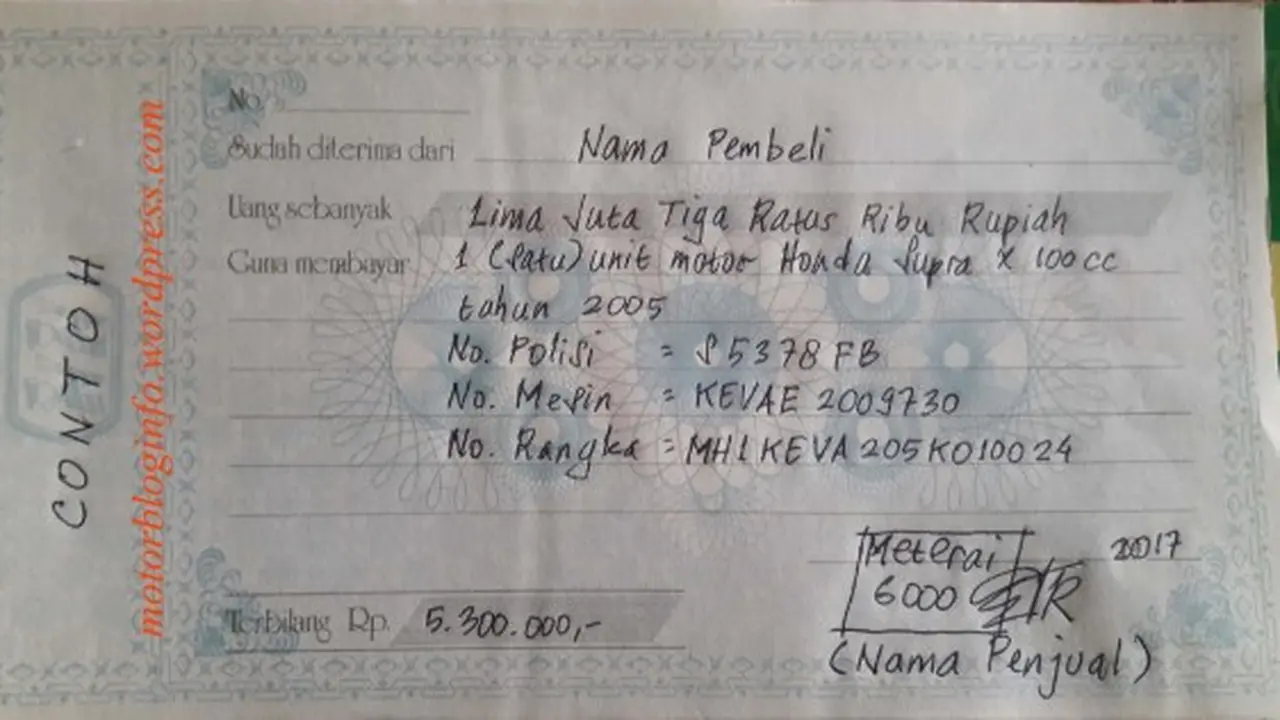 CONTOH
motorbloginfa.wordpress.com
No.
Sudah diterima dari Nama Pembeli
Uang sebanyak Lima Juta Tiga Ratus Ribu Rupiah
Guna membayar 1 (Satu) unit motor Honda Supra X 100 cc
tahun 2005
No. Polisi = S 5378 FB
No. Mesin = KEVAE 2009730
No. Rangka = MH1KEVA205K010024
2017
Meterai
6000
Terbilang Rp. 5.300.000,-
(Nama Penjual)